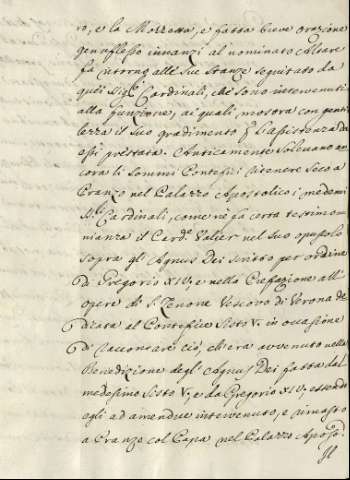 ro, e la Mozzetta, e fatta breve orazione
genuflesso innanzi al nominato Altare
fà ritorno alle sue stanze seguitato da
quei Sig.ri Cardinali, che sono intervenuti
alla funzione, ai quali mostra con genti
lezza il suo gradimento p l'assistenza da
essi prestata. Anticamente solevano an
cora li Sommi Pontefici ritenere seco a
Pranzo nel Palazzo Apostolico i medemi
SS.ri Cardinali, come ne fà certa testimo
nianza il Card.e Valier nel suo opuscolo
sopra gli Agnus Dei scritto per ordine
di Gregorio XIV, e nella Prefazione all'
opere di S. Zenone Vescovo di Verona de
dicata al Pontefice Sisto V. in occasione
di raccontare ciò, ch'era avvenuto nella
Benedizione degl'Agnus Dei fatta dal
medesimo Sisto V, e da Gregorio XIV, essendo
egli ad amendue intervenuto, e rimasto
a Pranzo col Papa nel Palazzo Aposto.
Il